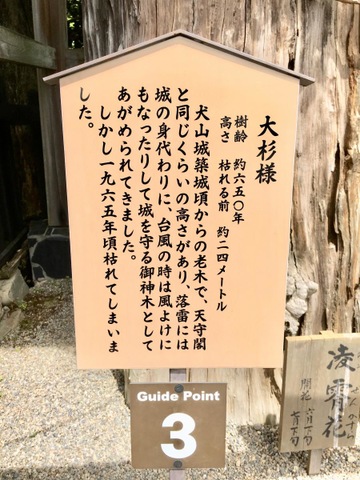 大杉様
樹齢 約六五〇年
高さ 枯れる前 約二四メートル
犬山城築城頃からの老木で、天守閣
と同じくらいの高さがあり、落雷には
城の身代わりに、台風の時は風よけに
もなったりして城を守る御神木として
あがめられてきました。
しかし一九六五年頃枯れてしまいま
した。
Guide Point
3
凌霄花
開花 六月下旬
七月下旬